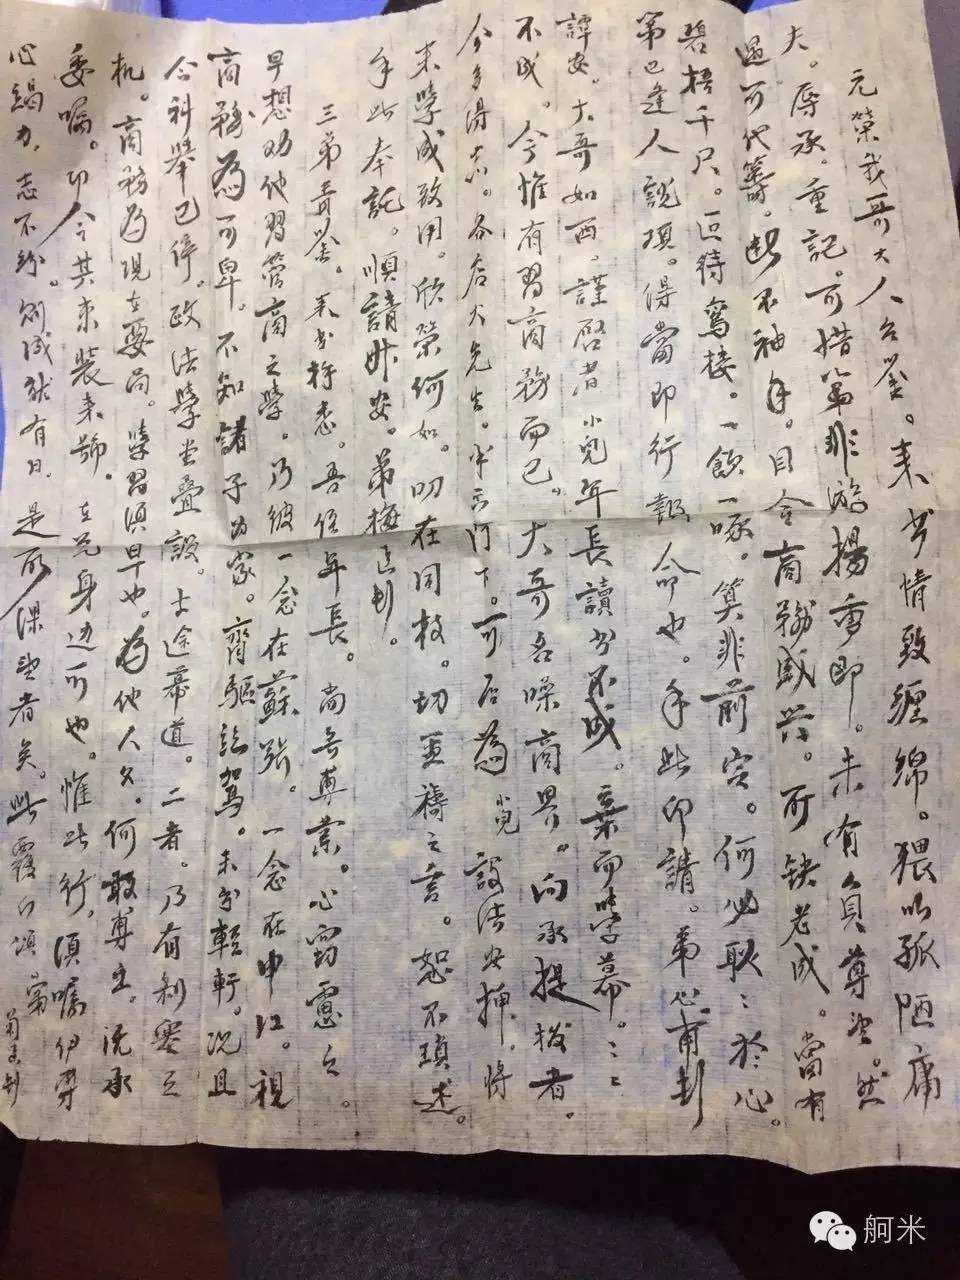 元榮我哥大人台鉴。来书情致缠綿。猥以孤陋庸
夫。辱承。重記。可惜第非游揚重郎。未有負尊望。然
遇可代籌。起不袖手。目今商務盛兴。所缺老成。當有
碧梧千尺。叵待鸞棲。一飲一啄。算非前定。何必耿：於心。
第已逢人說項。得當即行報命也。手此即請。弟心甫剳
譚安。大哥如面。謹啓者小兒年長讀书不成。棄而學幕。：：
不成。今惟有習商務而已。大哥名噪商界。向承提拔者。
今多得志。各店大先生。半分門下。可否為小兒設法安押。將
来學成致用。欣榮何如。叨在同枝。切至禱之言。恕不瑣述。
手此奉託。順請升安。弟梅 剳。
三弟青鉴。来书祥悉。吾侄年長。尚無專業。心窃憲之。
早想劝他習管商之學。乃彼一念在蘇張。一念在申江。視
商務為可卑。不知諸子百家。齊驅並駕。未分輊軒。况且
今科舉已停。政法學堂疊設。士途幕道。二者。乃有利塞之
机。商務為現在要局。學習須早也。為他人久。何敢專主。既承
委嘱。即令其束裝来號。在兄身边可也。惟此行，須囑伊專
心竭力，志不紛。則成就有日，是所深望者矣。此覆即頌 菊 剳
舸米